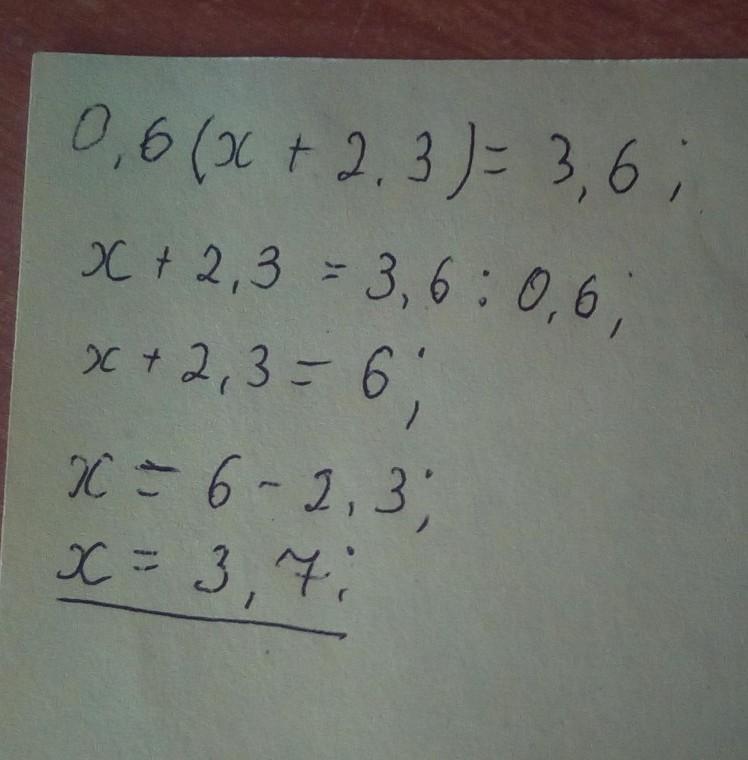 0,6(x + 2.3)= 3,6;
x + 2,3 = 3,6 : 0,6;
x + 2,3 = 6;
x = 6 - 2,3;
x = 3,7;